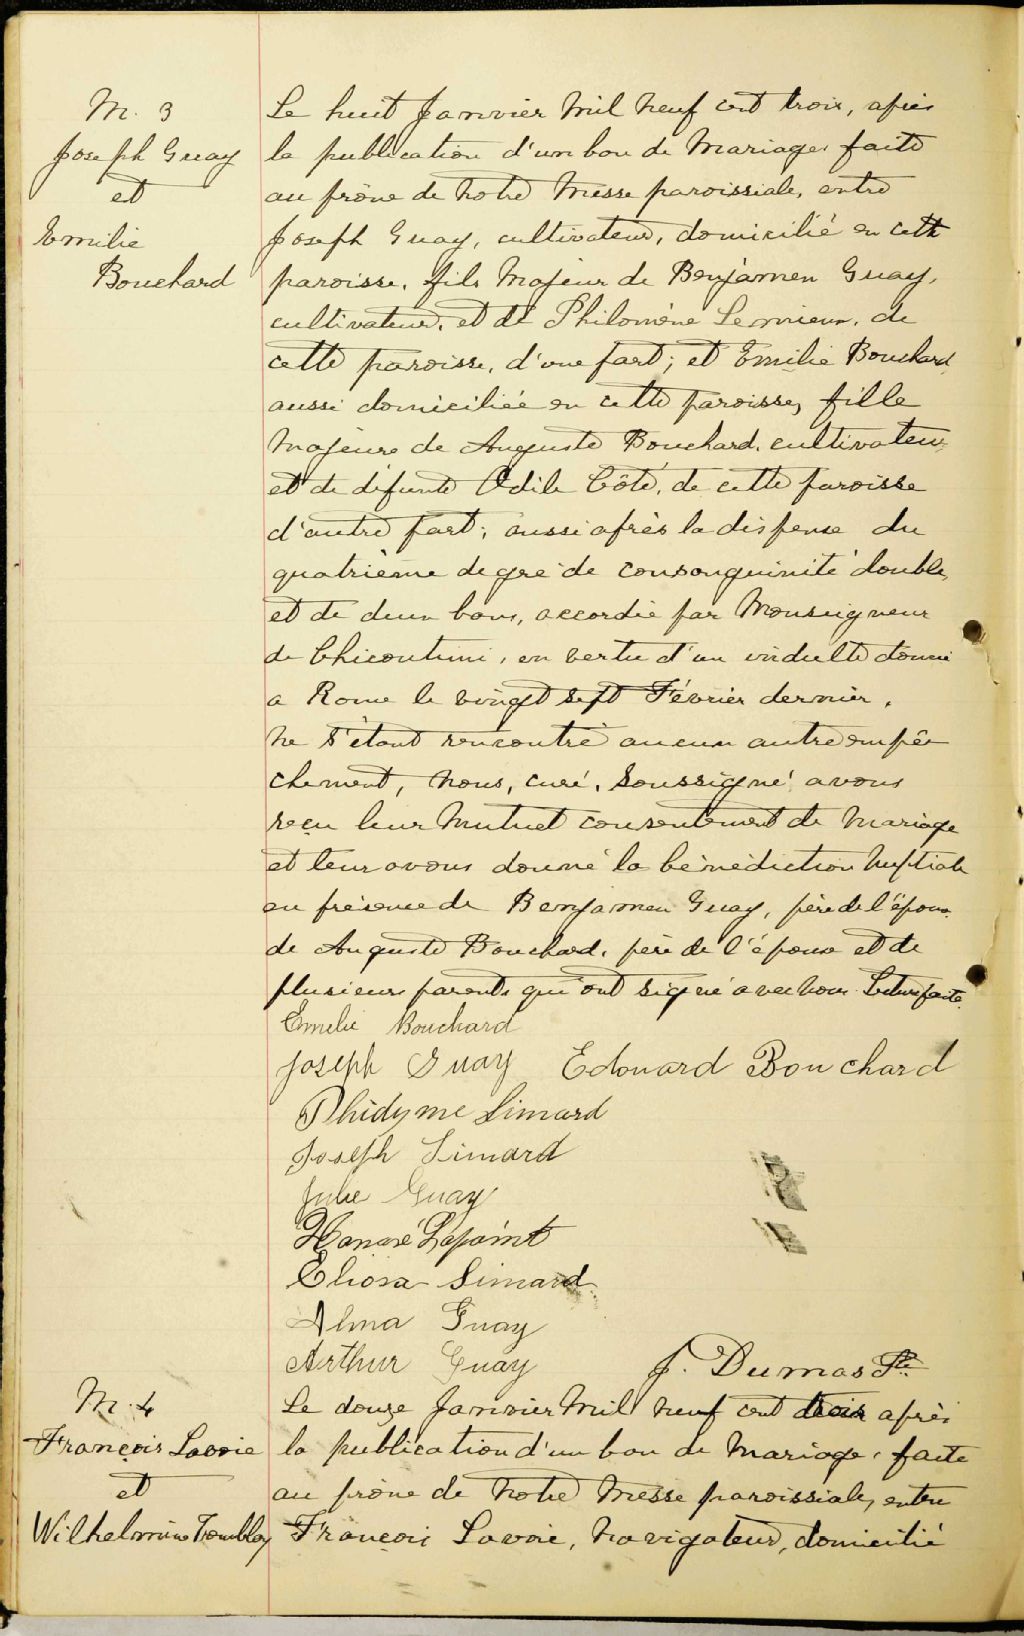 M. 3
Joseph Guay
et
Emilie
Bouchard
Le huit Janvier mil neuf cent trois, après
la publication d'un ban de Mariage, faite
au prône de notre Messe paroissiale, entre
Joseph Guay, cultivateur, domicilié en cette
paroisse, fils Majeur de Benjamen Guay,
cultivateur, et de Philomène Lemieux, de
cette paroisse, d'une part; et Emilie Bouchard
aussi domiciliée en cette paroisse, fille
majeure de Auguste Bouchard, cultivateur,
et de défunte Odile Côté, de cette paroisse
d'autre part; aussi après la dispense du
quatrième degré de consanguinité double,
et de deux bans, accordée par Monseigneur
de Chicoutimi, en vertu d'un indulte donné
a Rome le vingt sept Février dernier,
ne s'étant rencontré aucun autre empê
chement, nous, curé, soussigné avons
reçu leur mutuel consentement de mariage
et leur avons donné la bénédiction nuptiale
en présence de Benjamen Guay, père de l'époux
de Auguste Bouchard, père de l'épouse et de
plusieurs parents qui ont signé avec nous. Lecture faite.
Emelie Bouchard
Joseph Guay Edouard Bouchard
Phidyme Simard
Joseph Simard
Julie Guay
Honoré Lapoint
Eliosa Simard
Alma Guay
Arthur Guay J. Dumas Ptre
M. 4
François Lavoie
et
Wilhelmine Tremblay
Le douze Janvier mil neuf cent trois après
la publication d'un ban de Mariage, faite
au prône de notre Messe paroissiale, entre
François Lavoie, navigateur, domicilié